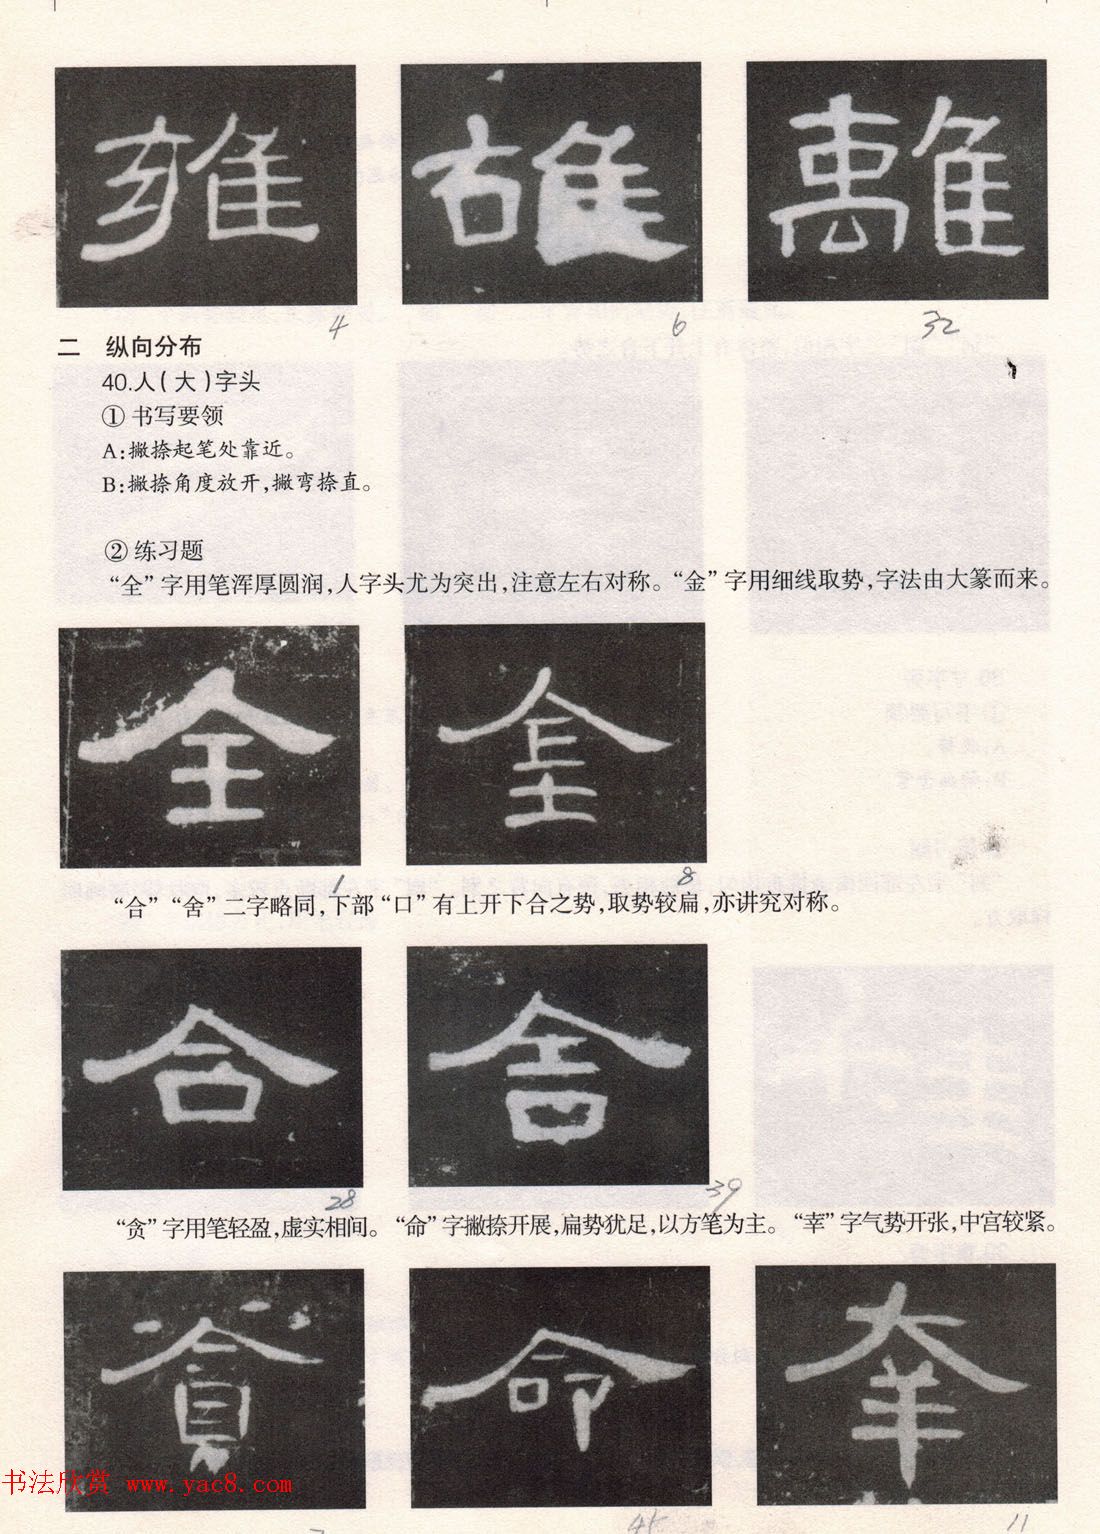 雍 雄 離
4 6 32
二 纵向分布
40.人(大)字头
① 书写要领
A:撇捺起笔处靠近。
B:撇捺角度放开,撇弯捺直。
② 练习题
“全”字用笔浑厚圆润,人字头尤为突出,注意左右对称。“金”字用细线取势,字法由大篆而来。
全 金
1 8
“合”“舍”二字略同,下部“口”有上开下合之势,取势较扁,亦讲究对称。
合 舍
28 39
“贪”字用笔轻盈,虚实相间。“命”字撇捺开展,扁势犹足,以方笔为主。“幸”字气势开张,中宫较紧。
貪 命 幸
书法欣赏 www.yac8.com
45 11